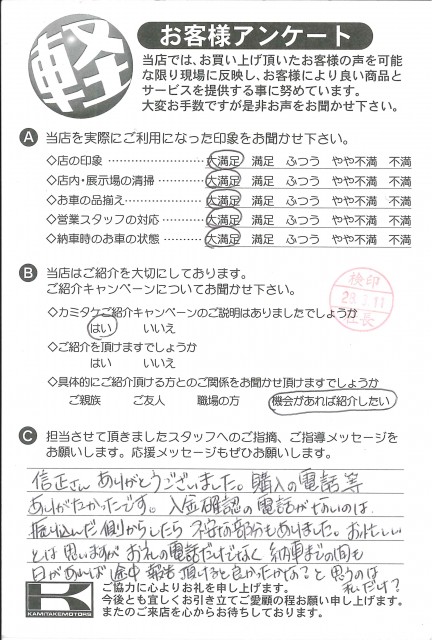 軽
お客様アンケート
当店では、お買い上げ頂いたお客様の声を可能
な限り現場に反映し、お客様により良い商品と
サービスを提供する事に努めています。
大変お手数ですが是非お声をお聞かせ下さい。
A 当店を実際にご利用になった印象をお聞かせ下さい。
◇店の印象 大満足 満足 ふつう やや不満 不満
◇店内・展示場の清掃 大満足 満足 ふつう やや不満 不満
◇お車の品揃え 大満足 満足 ふつう やや不満 不満
◇営業スタッフの対応 大満足 満足 ふつう やや不満 不満
◇納車時のお車の状態 大満足 満足 ふつう やや不満 不満
B 当店はご紹介を大切にしております。
ご紹介キャンペーンについてお聞かせ下さい。
検印
社長
◇カミタケご紹介キャンペーンのご説明はありましたでしょうか
はい いいえ
◇ご紹介を頂けますでしょうか
はい いいえ
◇具体的にご紹介頂ける方とのご関係をお聞かせ頂けますでしょうか
ご親族 ご友人 職場の方 機会があれば紹介したい
C 担当させて頂きましたスタッフへのご指摘、ご指導メッセージを
お願いします。応援メッセージもぜひお願いします。
信正さん ありがとうございました。購入の電話等
ありがたかったです。入金確認の電話がないのは
振り込んだ側からしたら 不安な部分もありました。お忙しい
とは思いますが お礼の電話だけでなく 納車までの間も
日があれば 途中 報告 頂けると良かったかな？と 思うのは
私だけ？
K
KAMITAKEMOTORS
ご協力に心よりお礼を申し上げます。
今後とも宜しくお引き立てご愛顧の程お願い申し上げます。
またのご来店を心からお待ちしております。